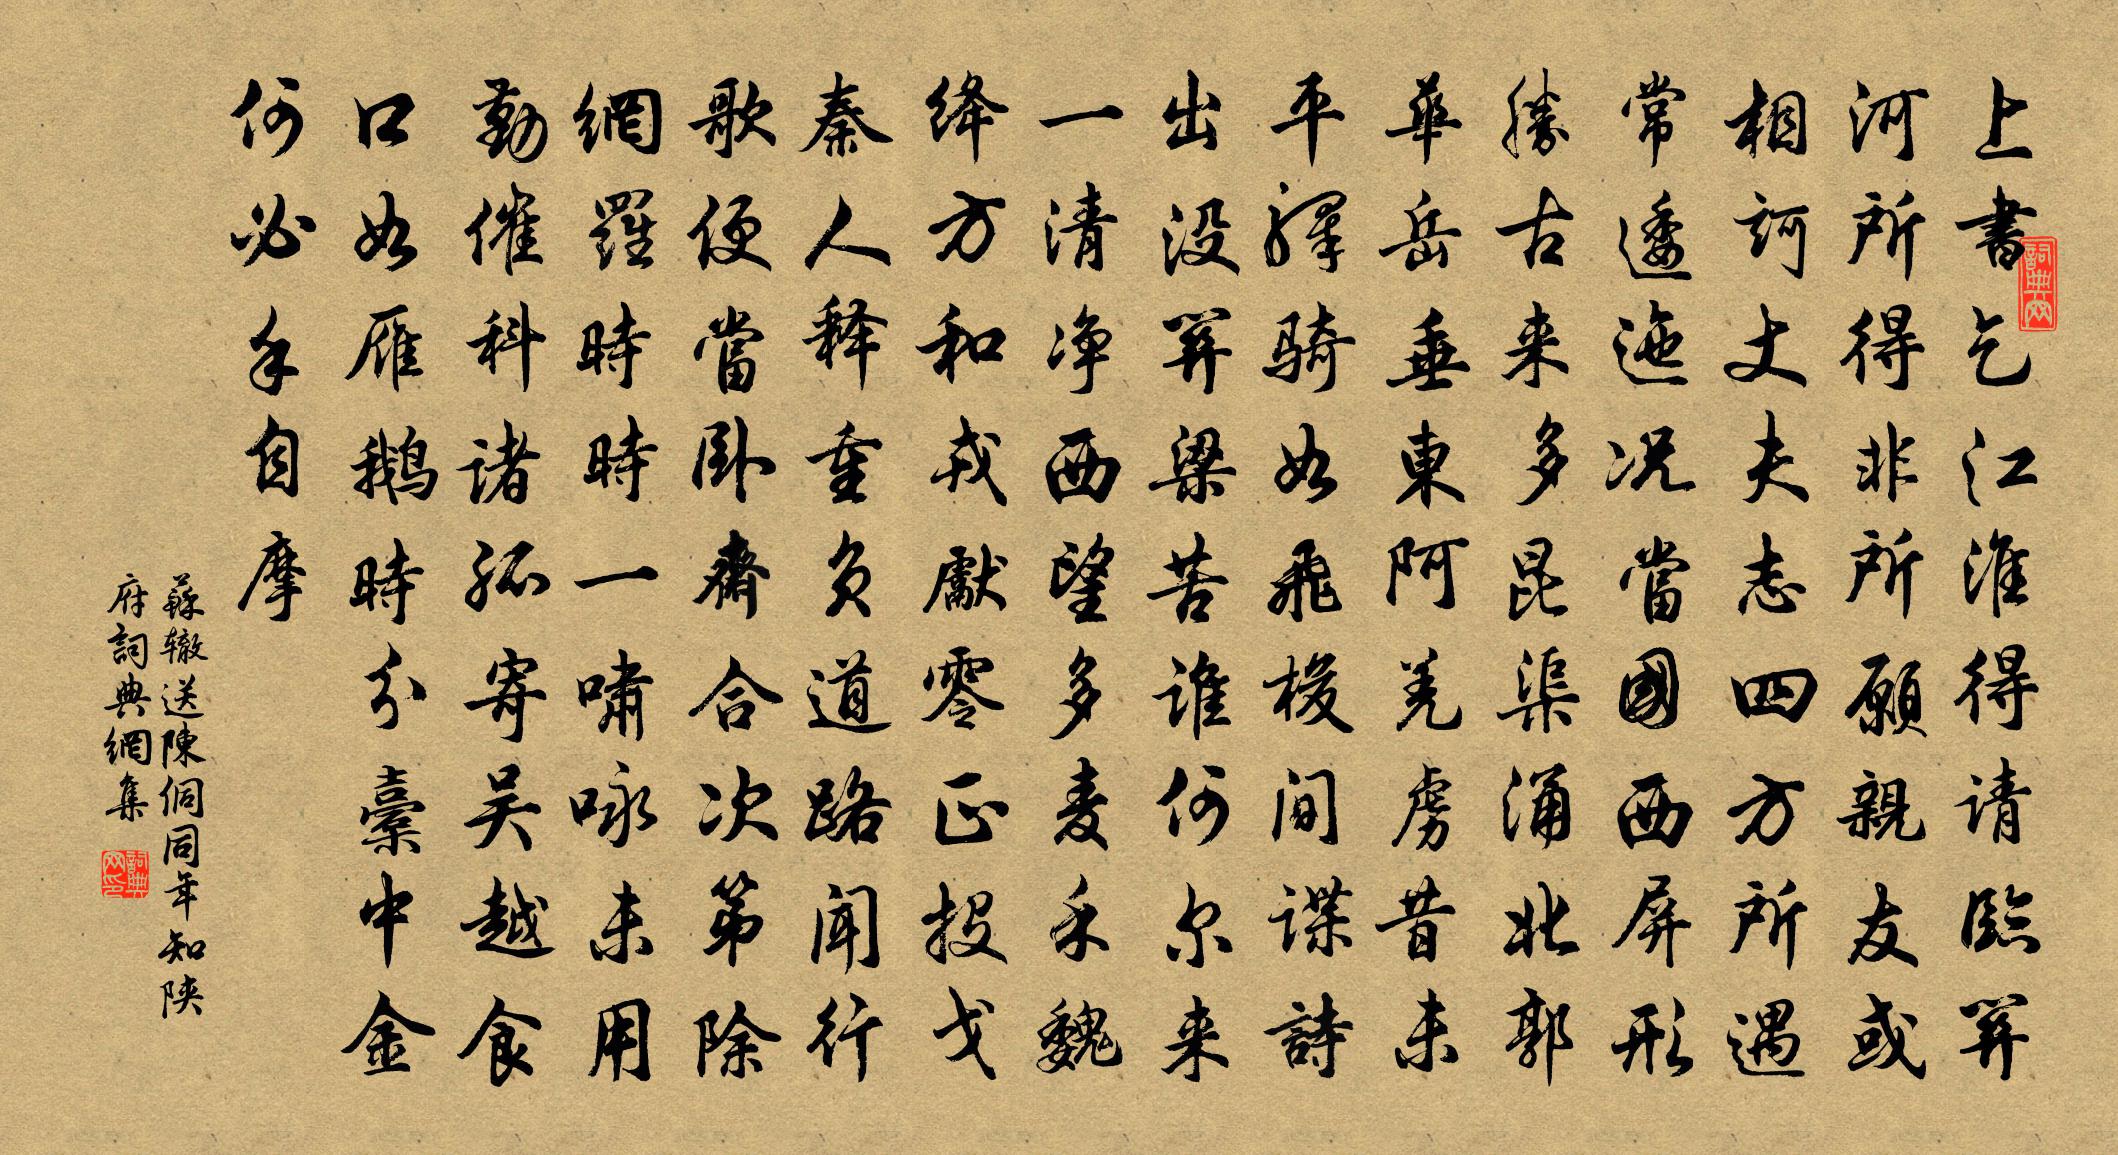 上書乞江淮得请臨關
河所得非所願親友或
相訶丈夫志四方所遇
常逶迤况當國西屏形
勝古来多昆渠涌北郭
華岳垂東阿羌虜昔未
平驛骑如飛梭间諜詩
出没關梁苦谁何尔来
一清净西望多麦禾魏
绛方和戎獻零正投戈
秦人释重负道路闻行
歌便當卧齋合次第除
網羅時時時一嘯咏未用
勤催科诸孤寄吴越食
口如雁鹅時分橐中金
何必手自摩
蘇辙送陳侗同年知陕
府詞典網集
詞典网
詞典网印